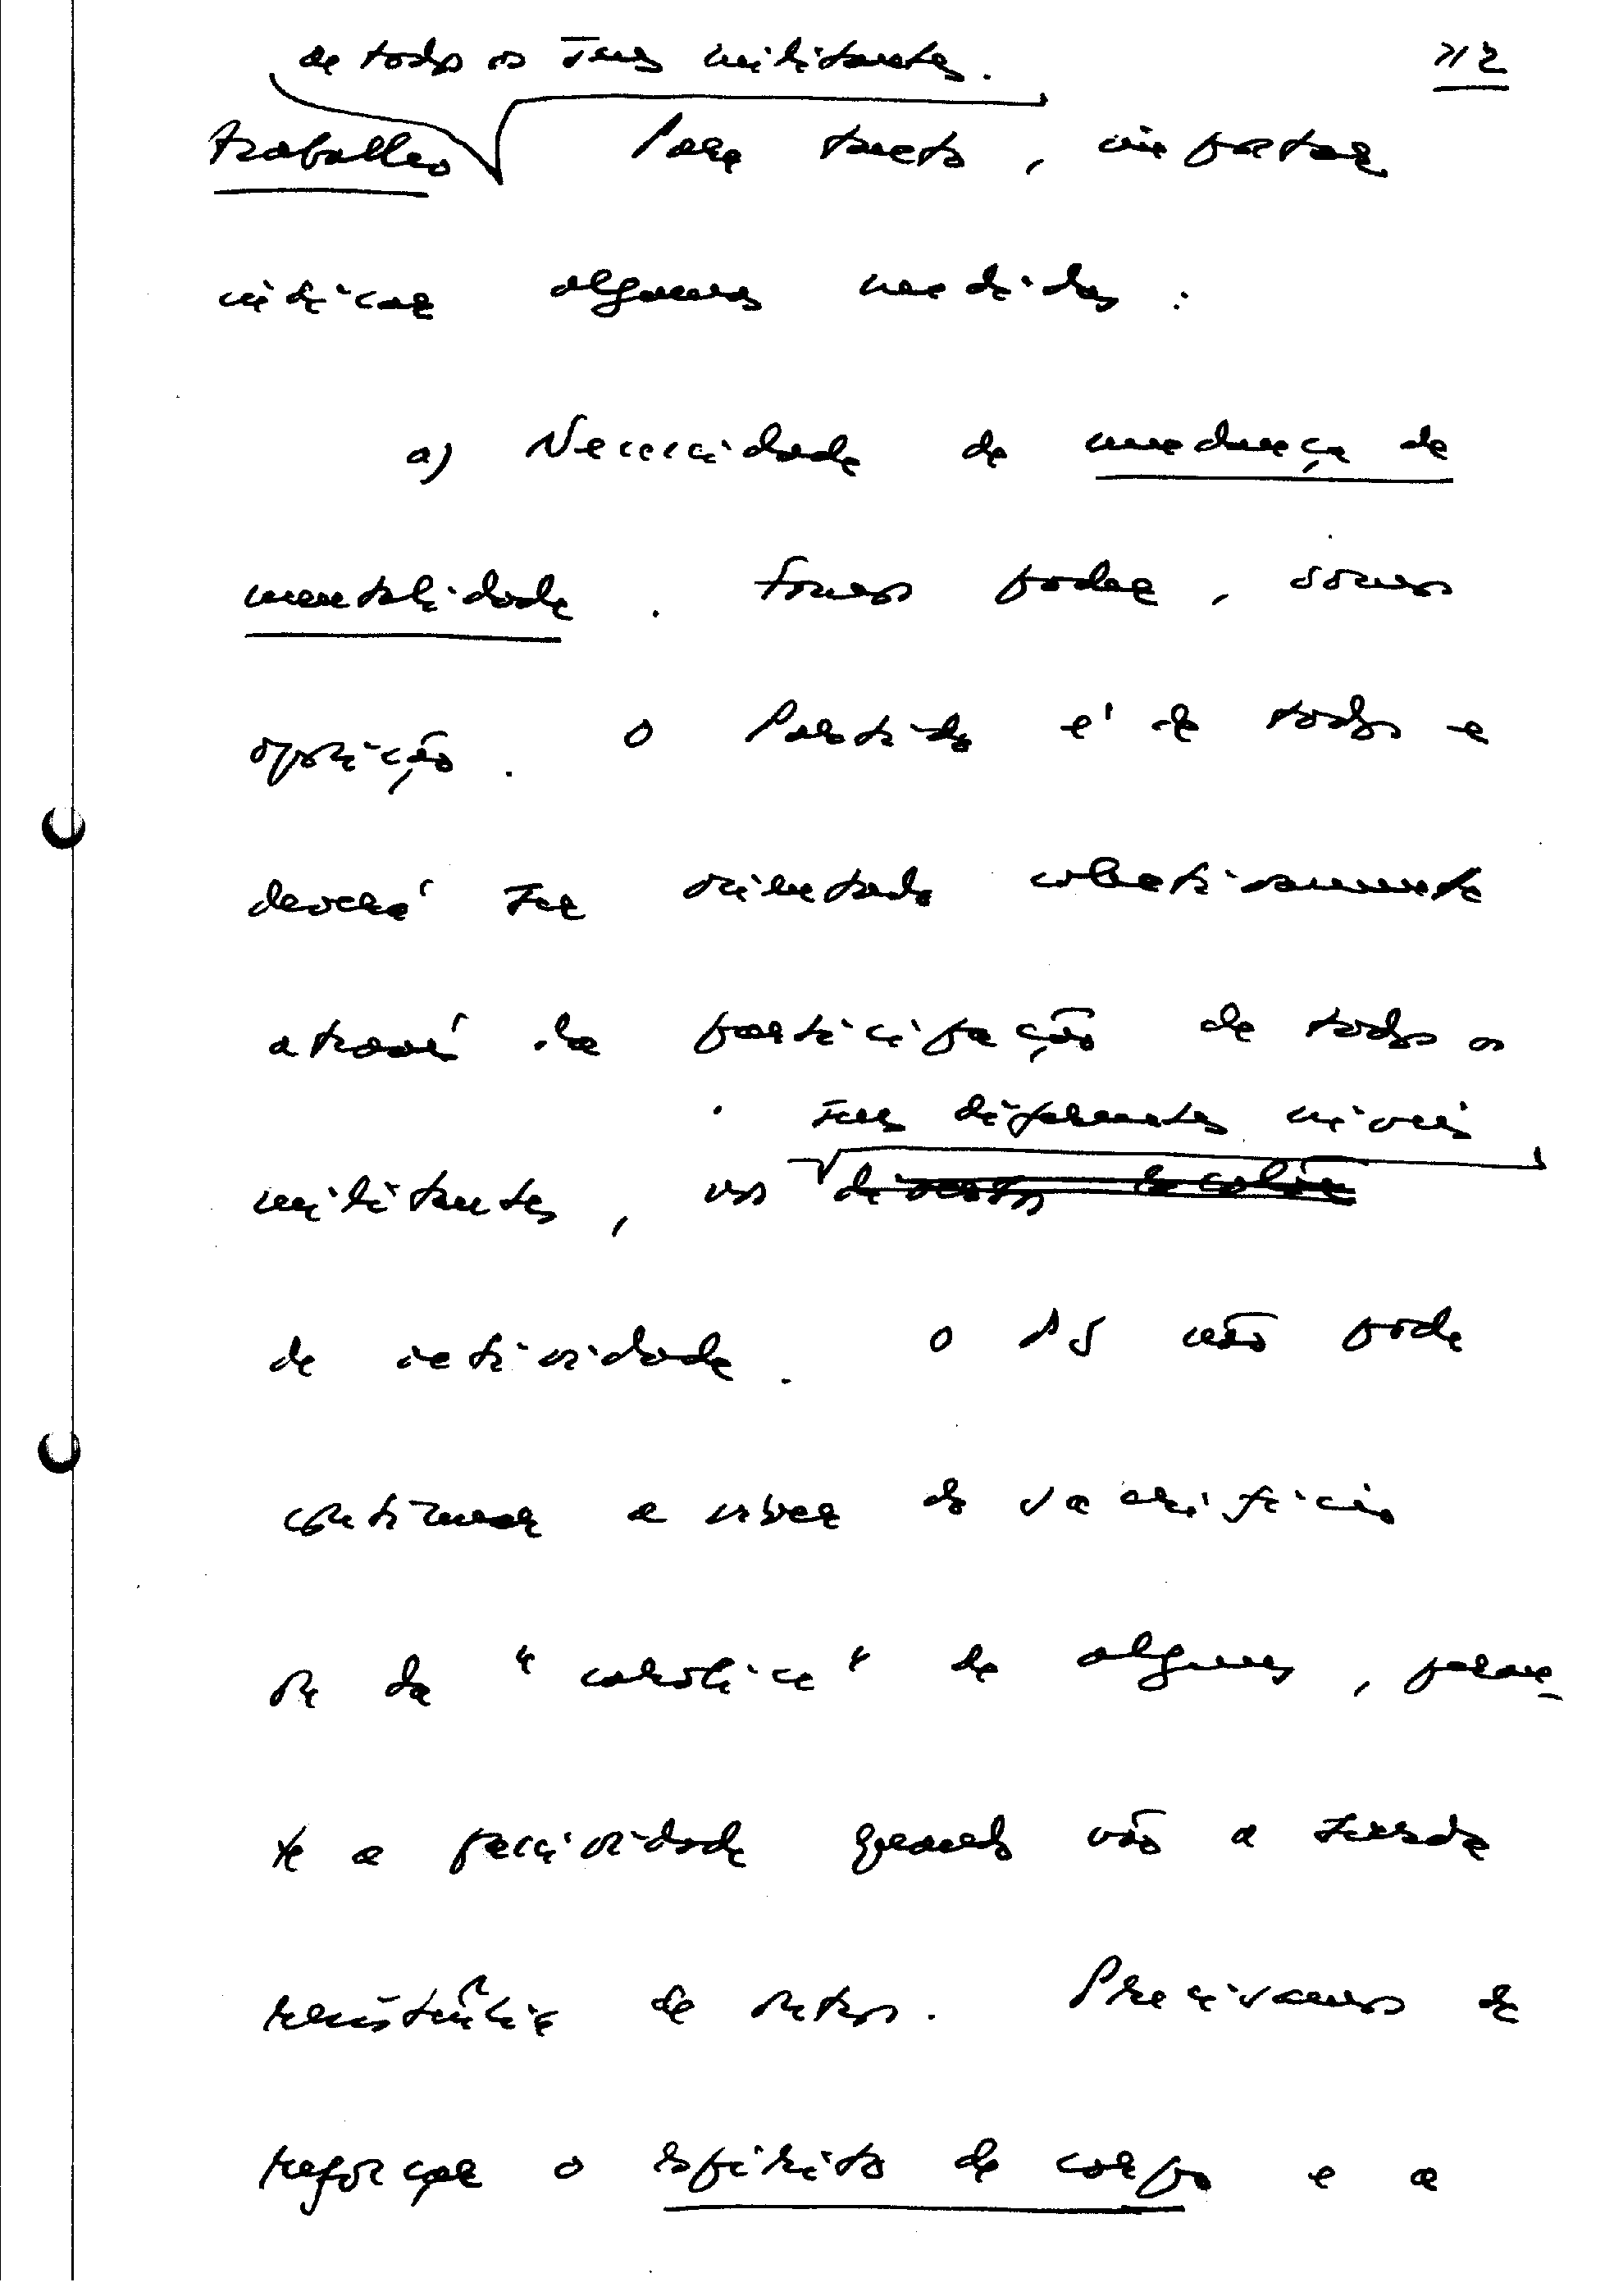 de todos os seus militantes. 712
trabalho Para tanto, importa
indicar algumas medidas :
a) Necessidade de mudança de
mentalidade . Fomos poder , somos
oposição . O Partido é de todos e
deverá ser orientado colectivamente
através da participação de todos os
seus diferentes níveis
militantes , nos diversos escalões
de actividade . O PS não pode
continuar a viver do sacrifício
ou da "carolice" de alguns , peran-
te a passividade quando não a surda
resistência de outros . Precisamos de
reforçar o espírito de corpo e a